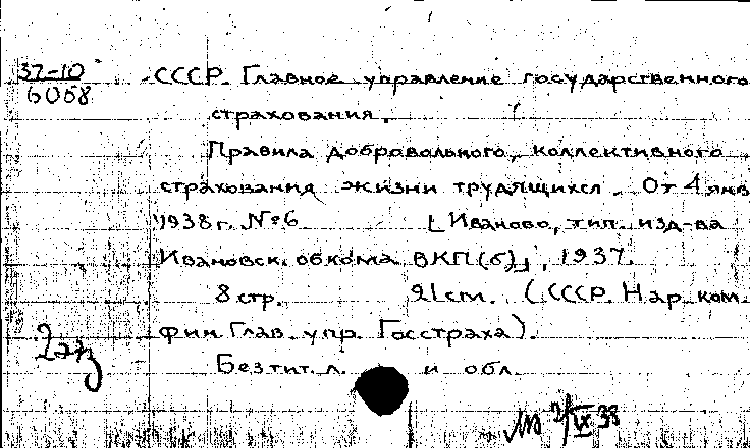 37-10
6068
СССР. Главное управление государственного
страхования.
Правила добровольного, коллективного
страхования жизни трудящихся. От 4 янв
1938 г. №6 [Иваново, тип. изд-ва
Ивановск. обкома ВКП(б)], 1937.
8 стр. 21 см. (СССР. Нар. ком.
фин. Глав. упр. Госстраха).
Без тит. л. и обл.
2 экз
2/IX 38